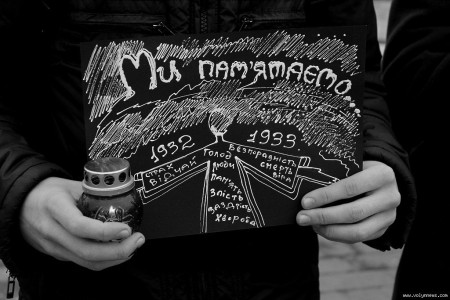 Ми пам'ятаємо...
1932 1933
страх
відчай
голод
люди
безпорадність
смерть
віра
пам'ять
злість
заздрість
хвороба
www.volynnews.com